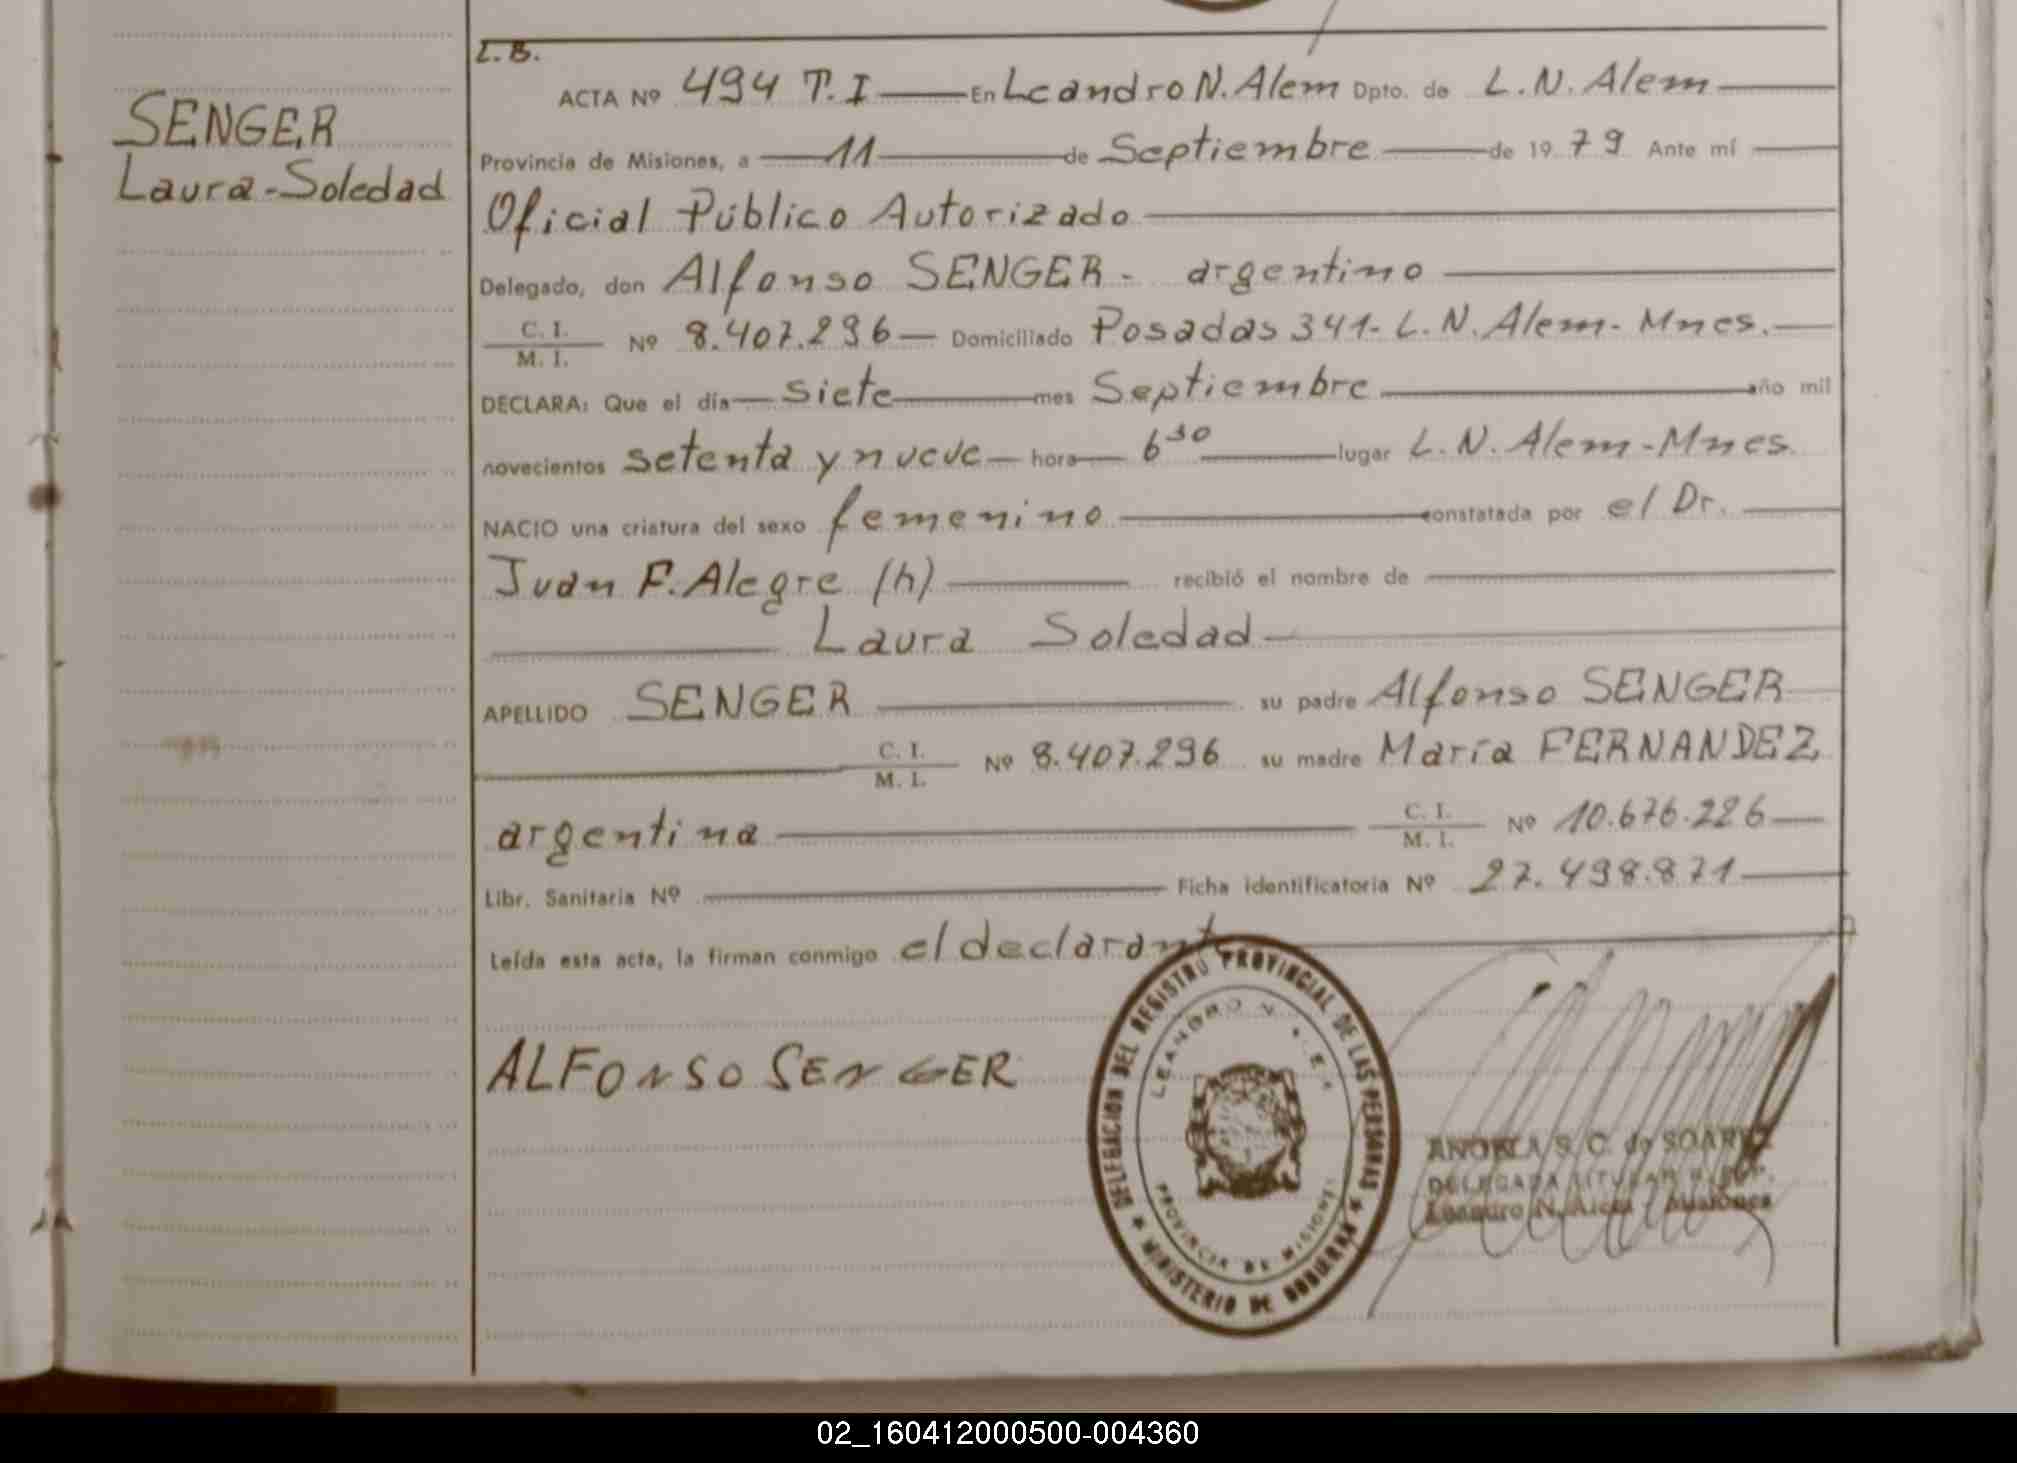 L.B.
SENGER
Laura-Soledad
ACTA Nº 494 T.I En Leandro N. Alem Dpto. de L.N. Alem
Provincia de Misiones, a 11 de Septiembre de 1979 Ante mí
Oficial Público Autorizado
Delegado, don Alfonso SENGER - argentino
C. I.
M. I. Nº 8.407.296 Domiciliado Posadas 341- L.N. Alem- Mnes.
DECLARA: Que el día siete mes Septiembre año mil
novecientos setenta y nueve hora 6 30 lugar L.N. Alem-Mnes.
NACIO una criatura del sexo femenino constatada por el Dr.
Juan F. Alegre (h) recibió el nombre de
Laura Soledad
APELLIDO SENGER su padre Alfonso SENGER
C. I.
M. I. Nº 8.407.296 su madre María FERNANDEZ
argentina C. I.
M. I. Nº 10.676.226
Libr. Sanitaria Nº Ficha identificatoria Nº 27.498.871
Leída esta acta, la firman conmigo el declarante
ALFONSO SENGER
DELEGACION DEL REGISTRO PROVINCIAL DE LAS PERSONAS
LEANDRO N.
PROVINCIA DE MISIONES
★ MINISTERIO DE GOBIERNO ★
S. C. de SOAREZ
DELEGADA TITULAR
Leandro N. Alem - Misiones
02_160412000500-004360